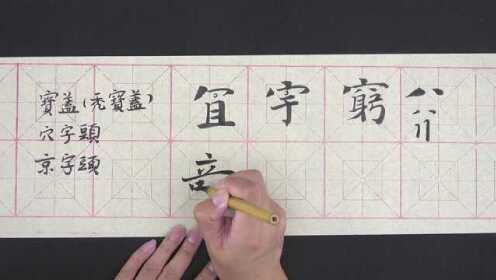 寶蓋(禿寶蓋)
穴字頭
京字頭
宜 宇 窮 八
八